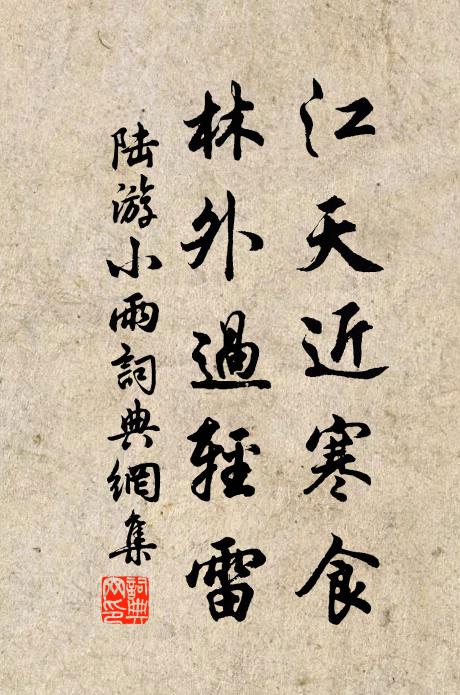 江天近寒食
林外過輕雷
陆游小雨詞典網集
詞典网印